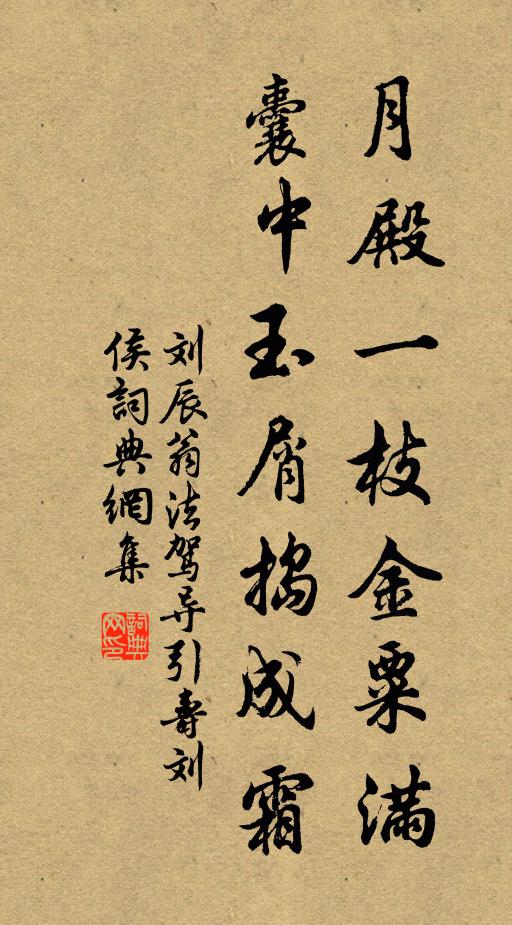 月殿一枝金粟满
囊中玉屑搗成霜
刘辰翁法驾导引壽刘
侯詞典網集
詞典网印